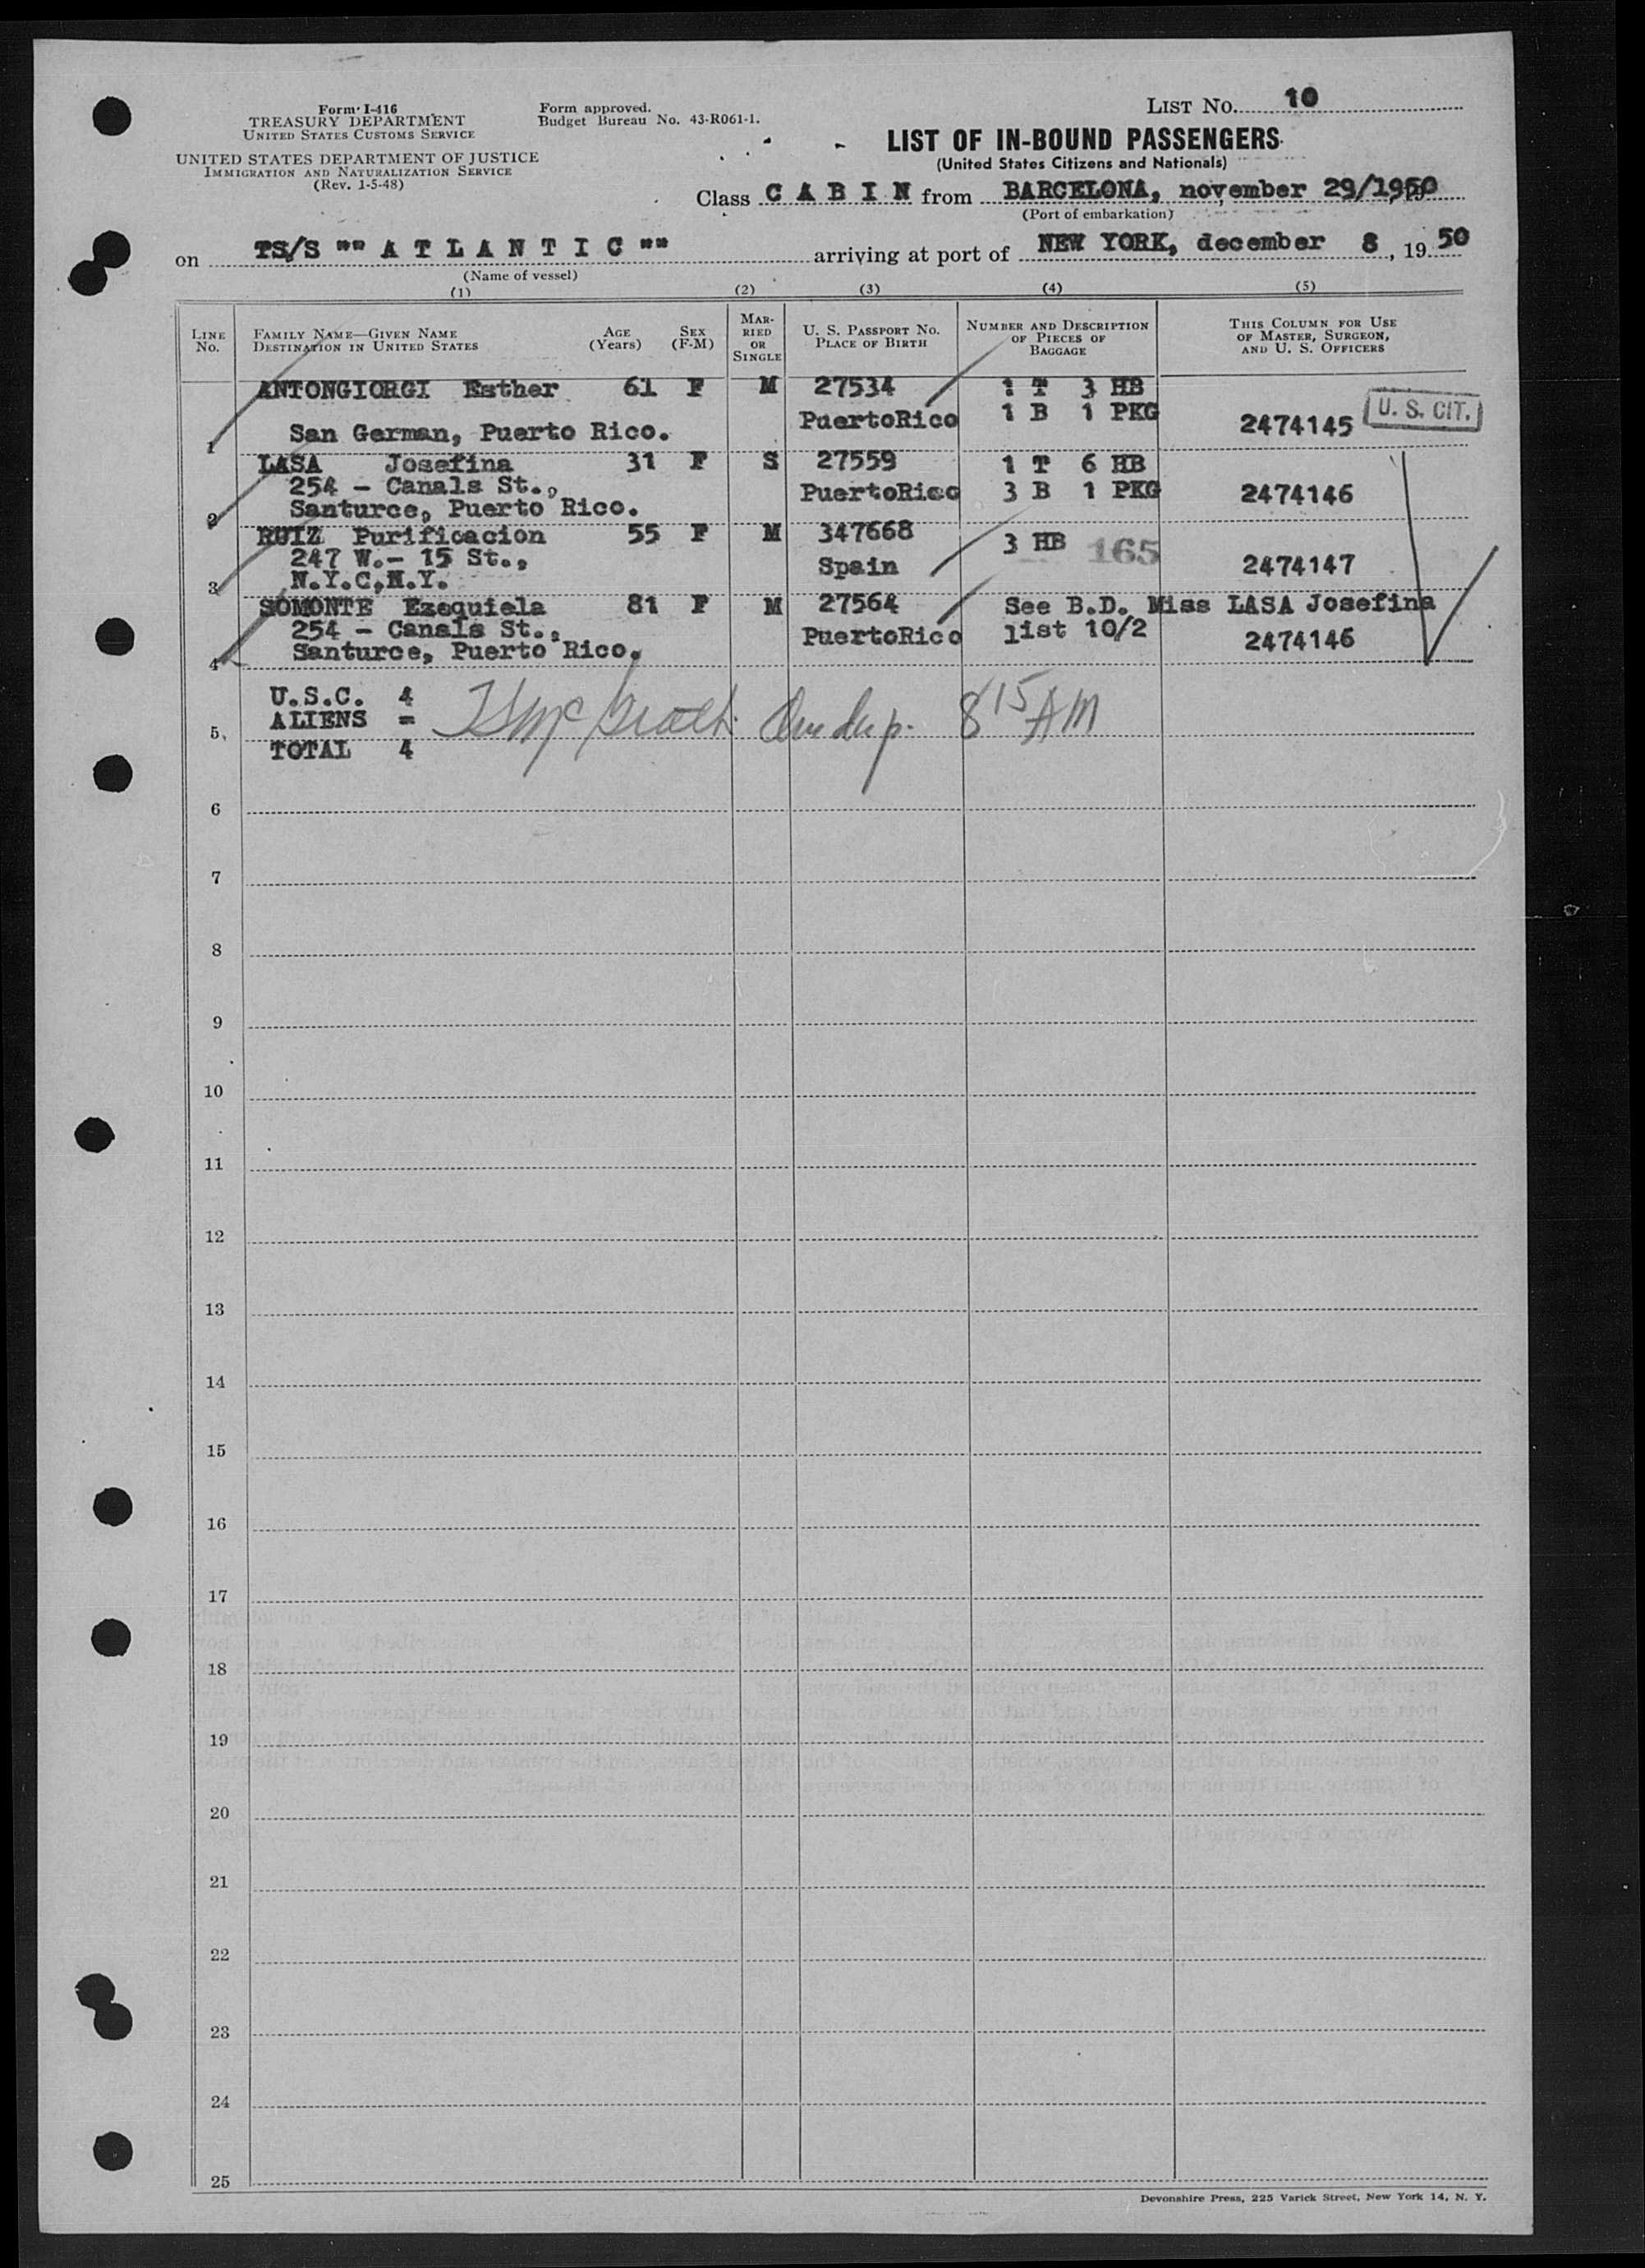 Form I-416
TREASURY DEPARTMENT
UNITED STATES CUSTOMS SERVICE
UNITED STATES DEPARTMENT OF JUSTICE
IMMIGRATION AND NATURALIZATION SERVICE
(Rev. 1-5-48)
Form approved.
Budget Bureau No. 43-R061-1.
LIST NO. 10
LIST OF IN-BOUND PASSENGERS
(United States Citizens and Nationals)
Class C A B I N from BARCELONA, november 29/1950
(Port of embarkation)
on TS/S "" A T L A N T I C "" arriving at port of NEW YORK, december 8, 19 50
(Name of vessel)
(1) (2) (3) (4) (5)
LINE NO. FAMILY NAME—GIVEN NAME DESTINATION IN UNITED STATES AGE (Years) SEX (F-M) MARRIED OR SINGLE U. S. PASSPORT NO. PLACE OF BIRTH NUMBER AND DESCRIPTION OF PIECES OF BAGGAGE THIS COLUMN FOR USE OF MASTER, SURGEON, AND U. S. OFFICERS
ANTONGIORGI Esther 61 F M 27534 1 T 3 HB
PuertoRico 1 B 1 PKG
1 San German, Puerto Rico. 2474145 U. S. CIT.
LASA Josefina 31 F S 27559 1 T 6 HB
254 - Canals St., PuertoRico 3 B 1 PKG 2474146
2 Santurce, Puerto Rico.
RUIZ Purificacion 55 F M 347668 3 HB 165
247 W.- 15 St., Spain 2474147
3 N.Y.C,N.Y.
SOMONTE Ezequiela 81 F M 27564 See B.D. Miss LASA Josefina
254 - Canals St., PuertoRico list 10/2 2474146
4 Santurce, Puerto Rico.
U.S.C. 4
ALIENS =
5 8 15 AM
TOTAL 4
6
7
8
9
10
11
12
13
14
15
16
17
18
19
20
21
22
23
24
25
Devonshire Press, 225 Varick Street, New York 14, N. Y.